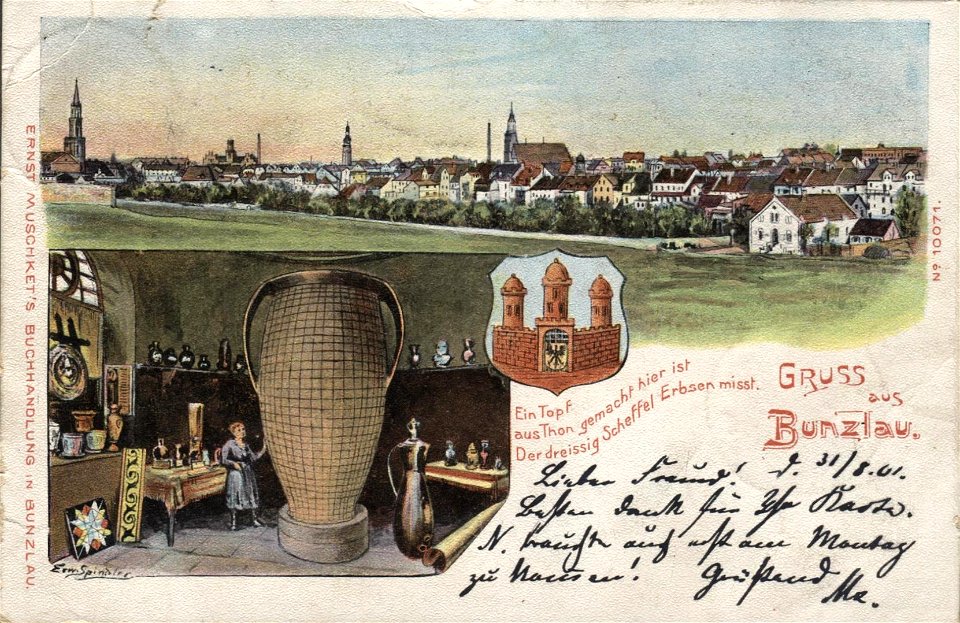 ERNST MUSCHKET'S BUCHHANDLUNG IN BUNZLAU.
No 10071.
Ein Topf
aus Thon gemacht hier ist
Der dreissig Scheffel Erbsen misst.
GRUSS
aus
Bunzlau.
Lieber Freund! d. 31/8.01.
Besten Dank für Ihr Karte.
N. brauchte auch erst am Montag
zu kommen! Grüßend
Mz.
Erw. Spindler